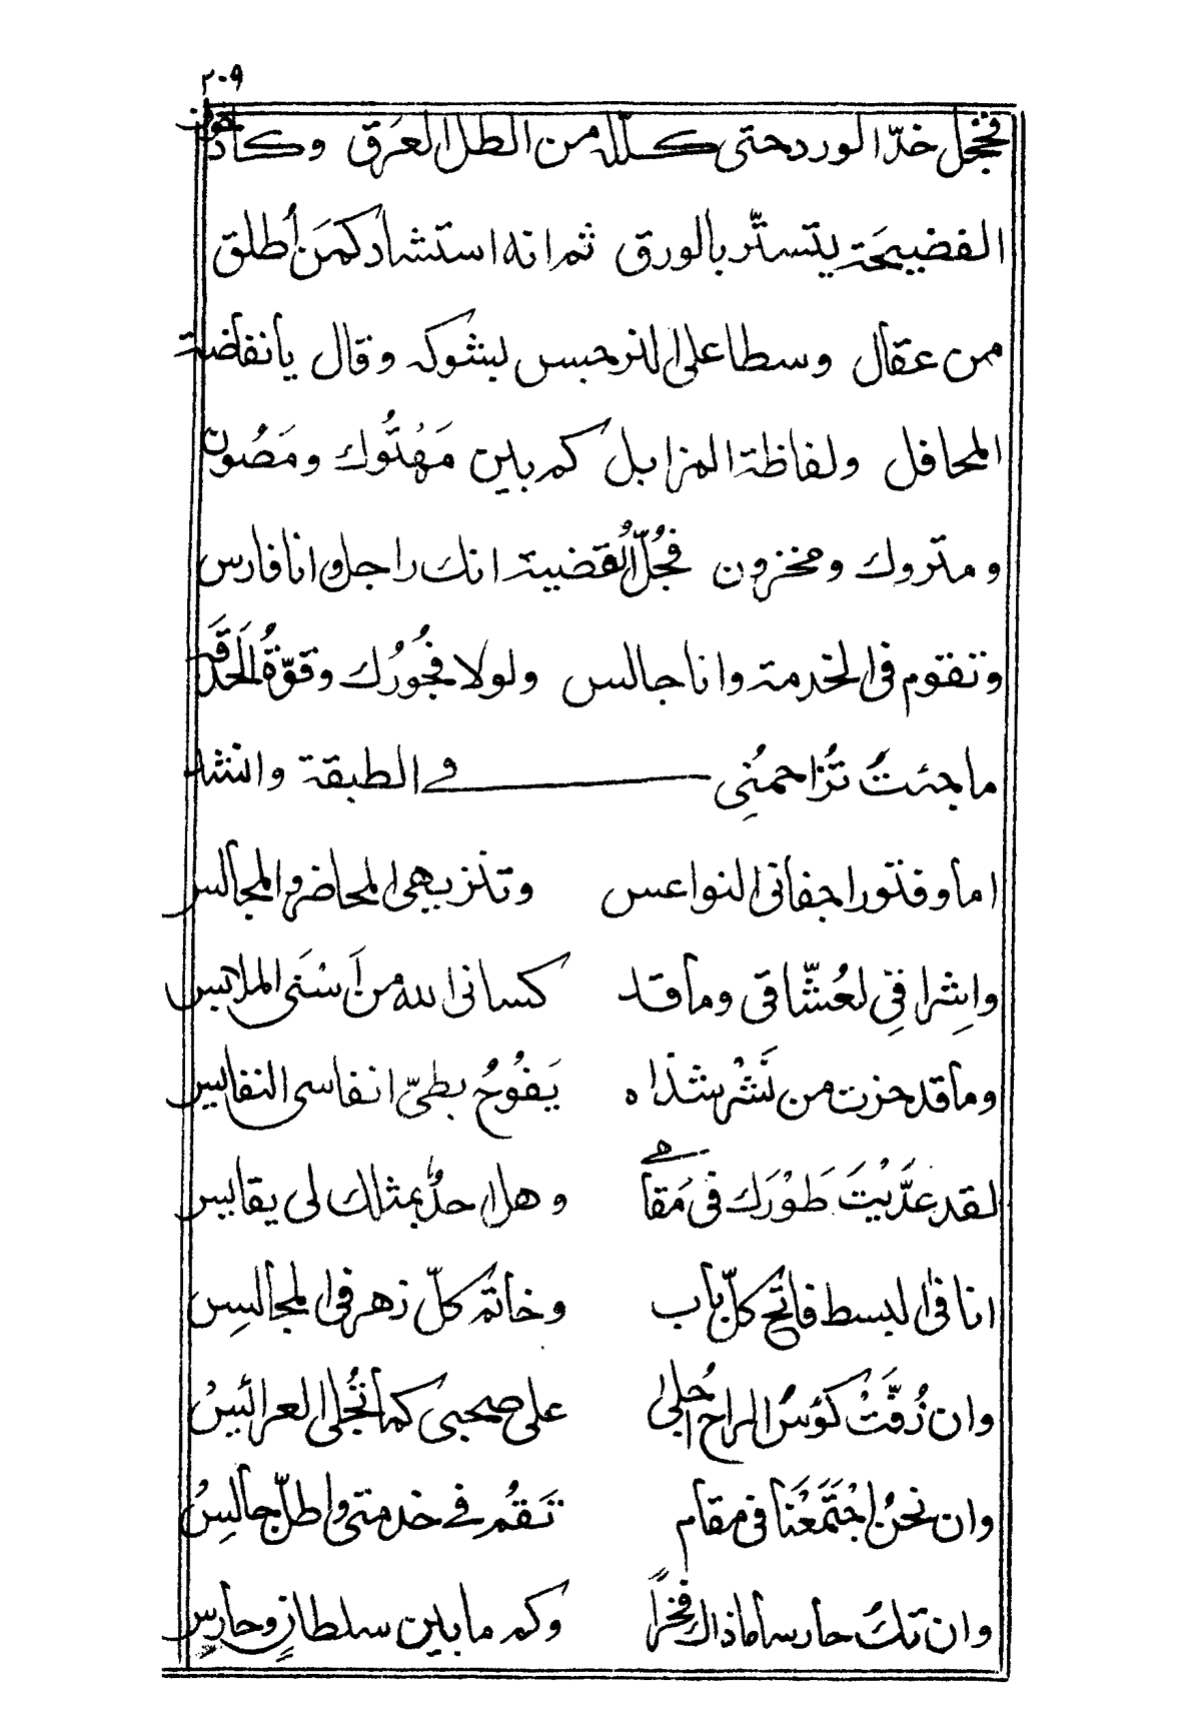 ٢٠٩
فخجل خدّ الورد حتى كلّله من الطل العَرَق وكاد خوف
الفضيحَة يتستّر بالورق ثم انه استشاد كمَن أُطلق
من عقال وسطا على النرجس بشوكه وقال يا نفاضة
المحافل ولفاظة المزابل كم بين مَهْتُوك ومَصُون
ومتروك ومخزون فجُلّ القضية انك راجل وانا فارس
وتقوم في الخدمة وانا جالس ولولا فجُورُك وقوّةُ الحَدَقَة
ما جئتَ تُزاحمُنِي في الطبقة وانشد
اما وفتور اجفاني النواعس وتنزيهي المحاضر والمجالس
واشراقِي لعُشّاقي وما قد كساني الله من أَسْنَى الملابس
وما قد حزت من نَشْر شذاه يَفُوحُ بطيّ انفاسي النفايس
لقد عدّيْتَ طَوْرَك في مَقامي وهل احدٌ بمثلك لي يقايس
انا في البسط فاتح كلّ باب وخاتم كلّ زهر في المجالسِ
وان زُفّتْ كؤسُ الراح أُجلى على صحبي كما تُجلى العرائسْ
وان نحنُ اجْتَمَعْنَا في مقام تَقُم في خدمتي واظلّ جالسْ
وان تكُ حارسا ما ذاك فخراً وكم ما بين سلطانٍ وحارسِ